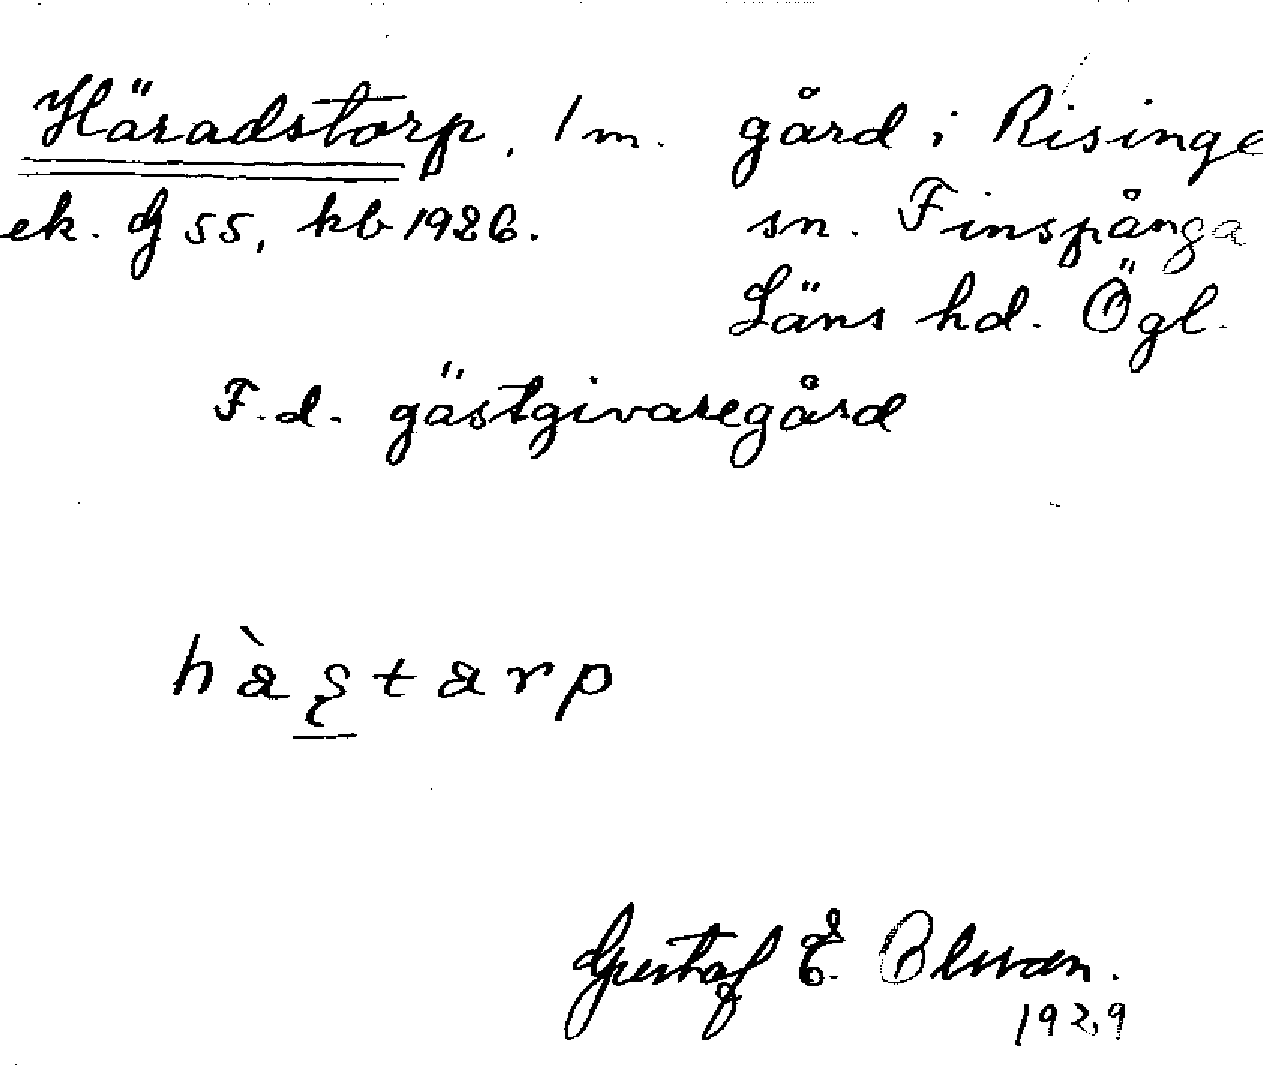 Häradstorp, 1 m. gård i Risinge
ek. bl 55, kb 1926. sn. Finspånga
Läns hd. Ögl.
F.d. gästgivaregård
hàstarp
Gustaf E.
1929